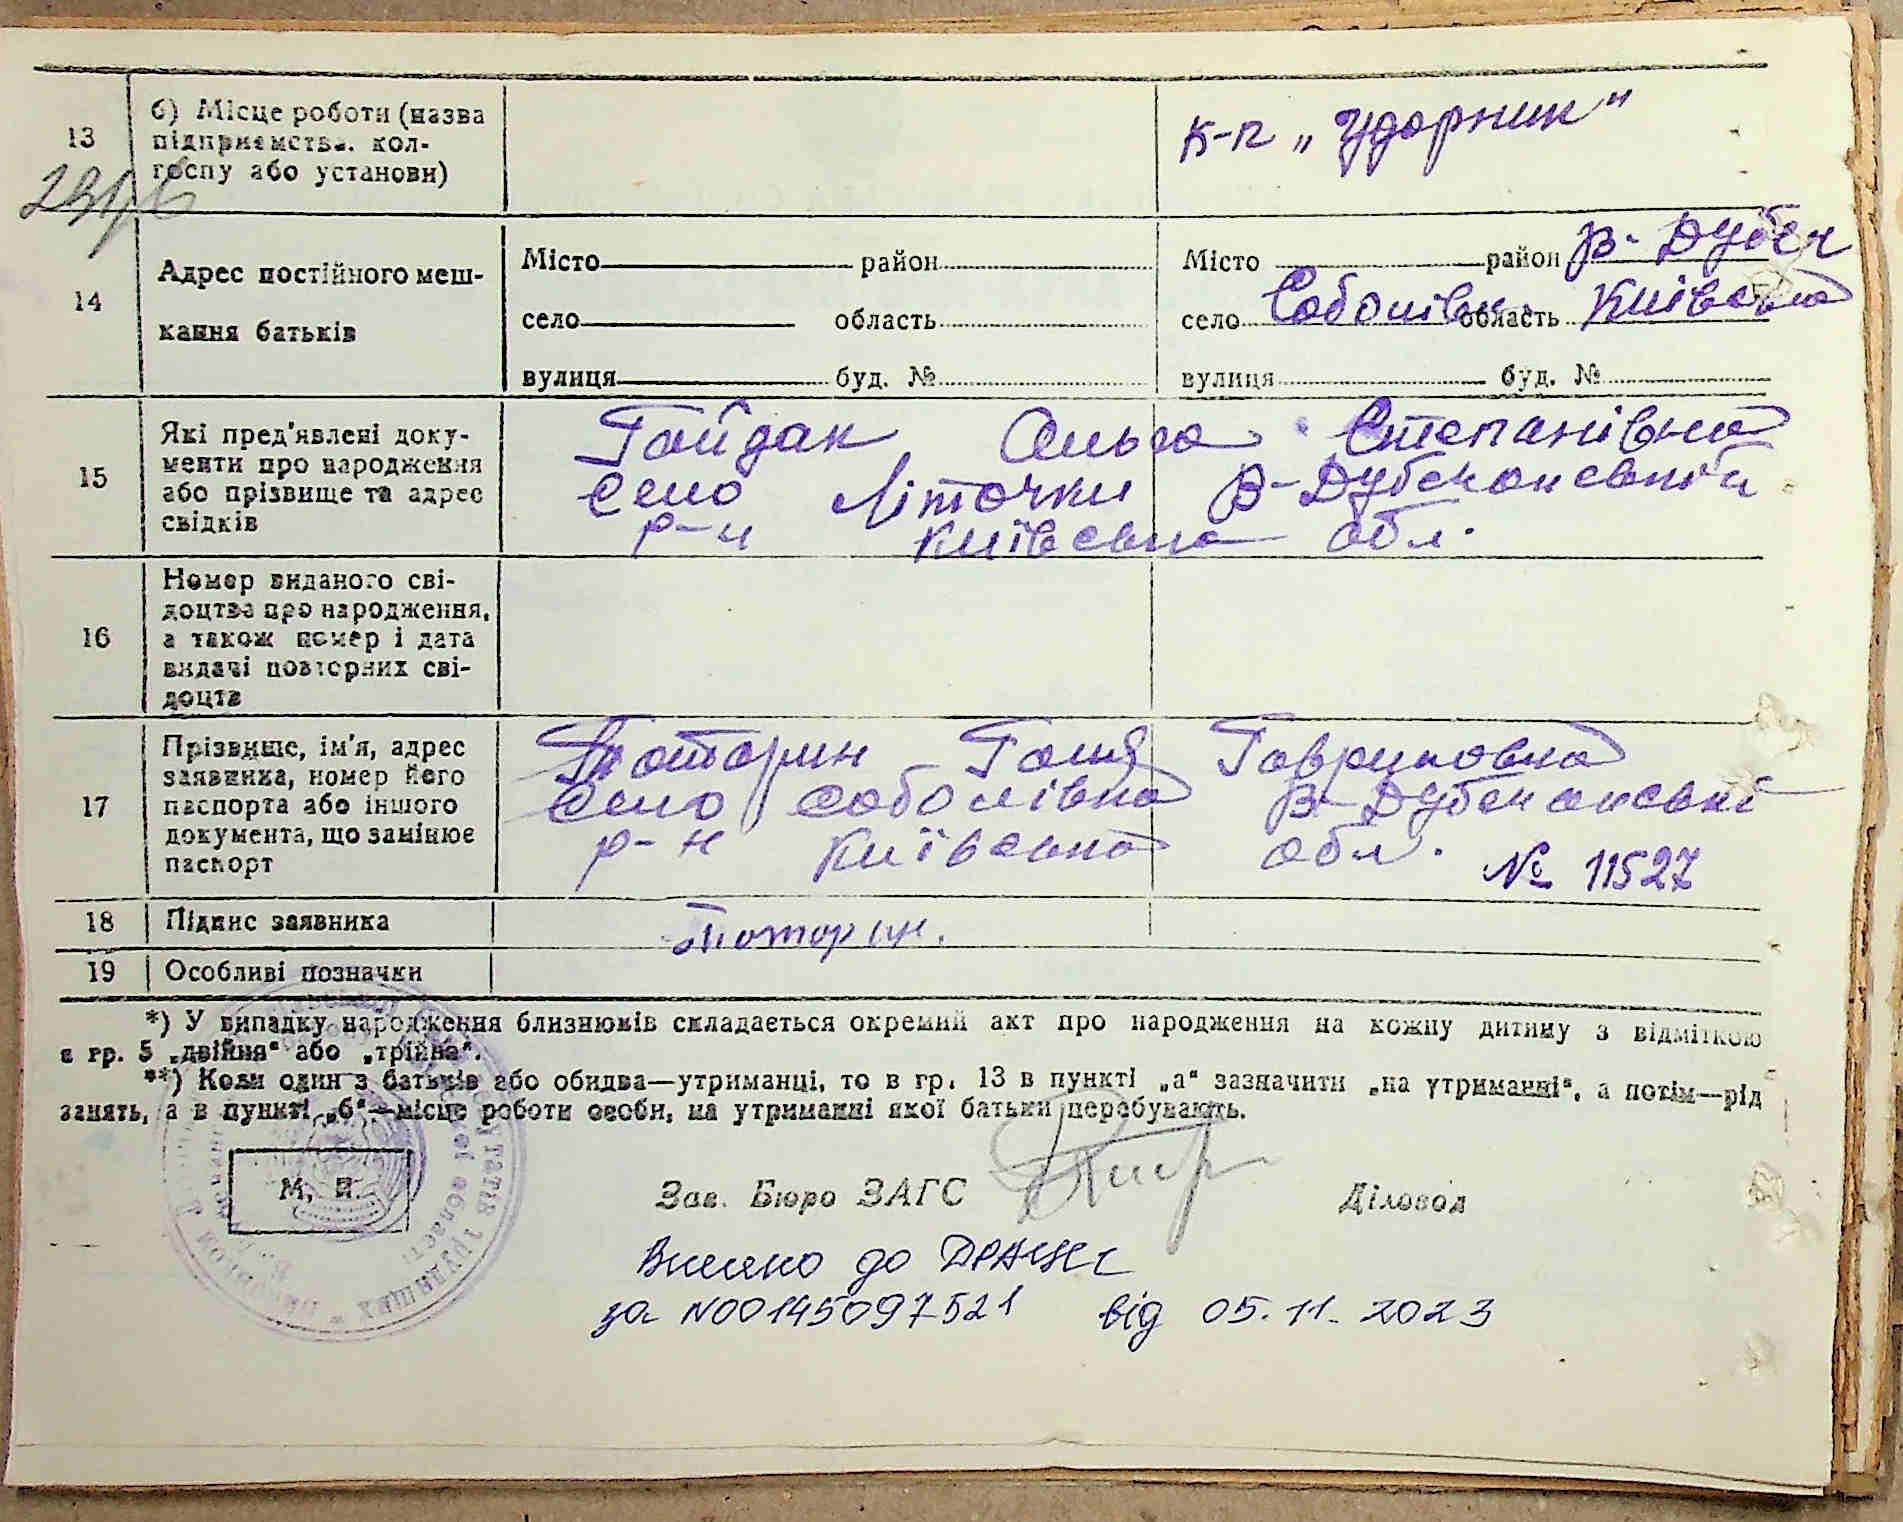 13
б) Місце роботи (назва
підприємства, кол-
госпу або установи)
к-п „Ударник“
14
Адрес постійного меш-
кання батьків
Місто район
село область
вулиця буд. №
Місто район В-Дубеч
село Соболівка область Київська
вулиця буд. №
15
Які пред'явлені доку-
менти про народження
або прізвище та адрес
свідків
Гайдак Ольга Степанівна
село Літочки В-Дубечанський
р-н Київська обл.
16
Номер виданого сві-
доцтва про народження,
а також номер і дата
видачі повторних сві-
доцтв
17
Прізвище, ім'я, адрес
заявника, номер його
паспорта або іншого
документа, що замінює
паспорт
Татарин Ганя Гавриловна
село Соболівка В-Дубечанські
р-н Київська обл. № 11527
18 Підпис заявника
Татарин.
19 Особливі позначки
*) У випадку народження близнюків складається окремий акт про народження на кожну дитину з відміткою
в гр. 5 „двійня“ або „трійня“.
**) Коли один з батьків або обидва—утриманці, то в гр. 13 в пункті „а“ зазначити „на утриманні“, а потім—рід
занять, а в пункті „б“—місце роботи особи, на утриманні якої батьки перебувають.
М. П.
Зав. Бюро ЗАГС Діловод
Внесено до ДРАЦСг
за N00145097521 від 05.11.2023